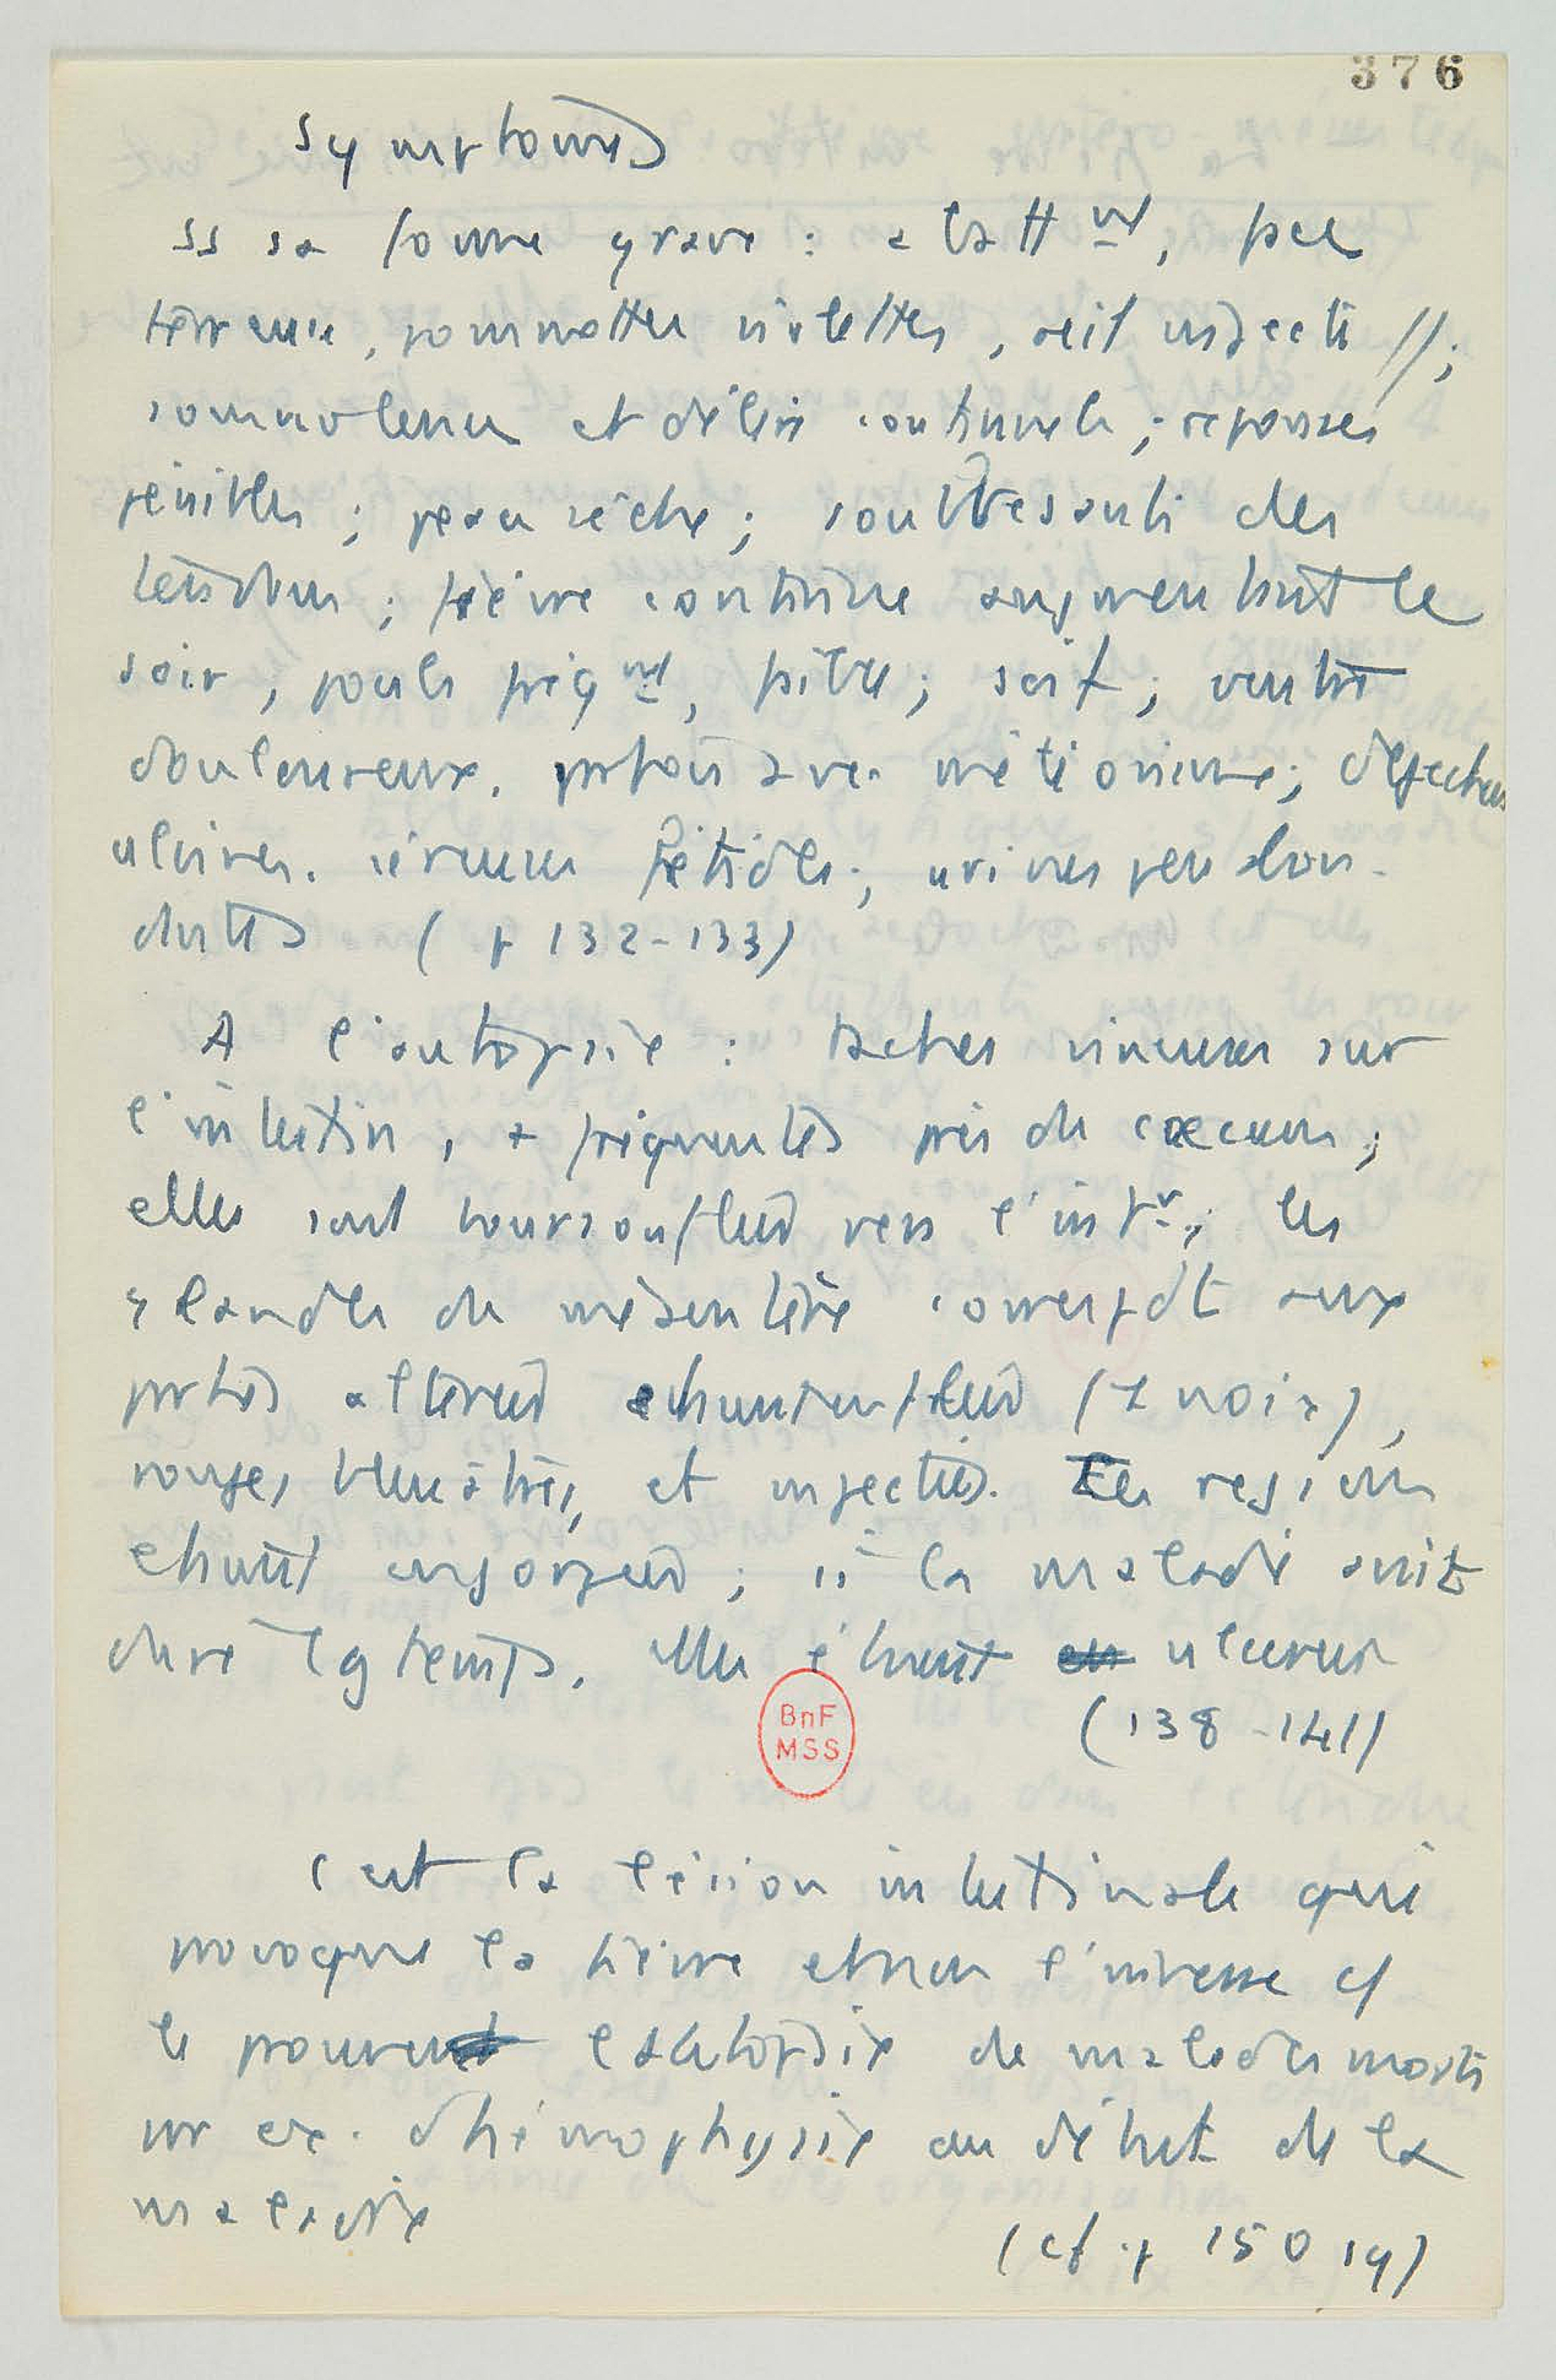 376
Symptomes
ss sa forme grave : abattmt, face
terreuse, pommettes violettes, œil injecté //;
somnolence et délire continuels ; reponses
pénibles ; peau sèche ; soubresauts des
tendons ; fièvre continue augmentant le
soir, pouls fréqmt, faible ; soif ; ventre
douloureux, prfois avec météorisme ; déjections
alvines, séreuses fétides ; urines peu abon-
dantes (p 132-133)
A l'autopsie : taches vineuses sur
l'intestin, + fréquentes près du cœcum ;
elles sont boursouflées vers l'intr ; les
glandes du mésentère correspdt aux
prties altérées étant
rouges, bleuâtres, et injectées. Les régions
étant engorgées ; si la maladie avait
duré lgtemps, elles étaient ulcérées
(138-141)
BnF
MSS
C'est la lésion intestinale qui
provoque la fièvre et non l'inverse cf
le prouve l'autopsie de malades morts
pr ex. d'hémophysie au début de la
maladie
(cf. p 150 sq)